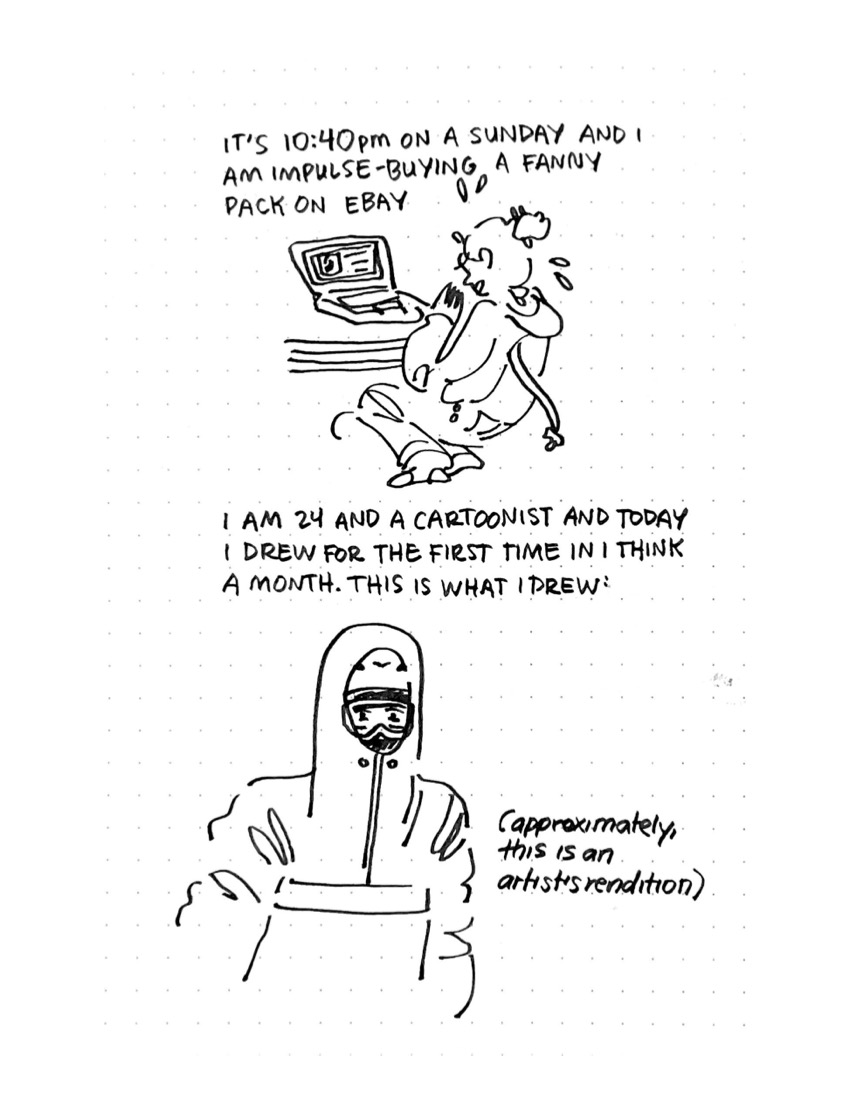 IT'S 10:40pm ON A SUNDAY AND I
AM IMPULSE-BUYING A FANNY
PACK ON EBAY
I AM 24 AND A CARTOONIST AND TODAY
I DREW FOR THE FIRST TIME IN I THINK
A MONTH. THIS IS WHAT I DREW:
(approximately,
this is an
artist's rendition)